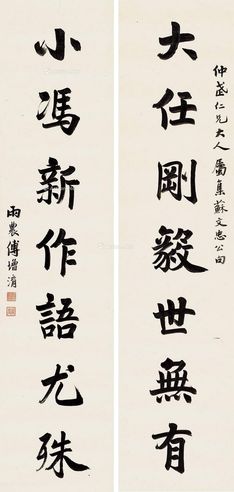 仲葊仁兄大人屬集蘇文忠公句
大任剛毅世無有
小馮新作語尤殊
雨農傅增淯